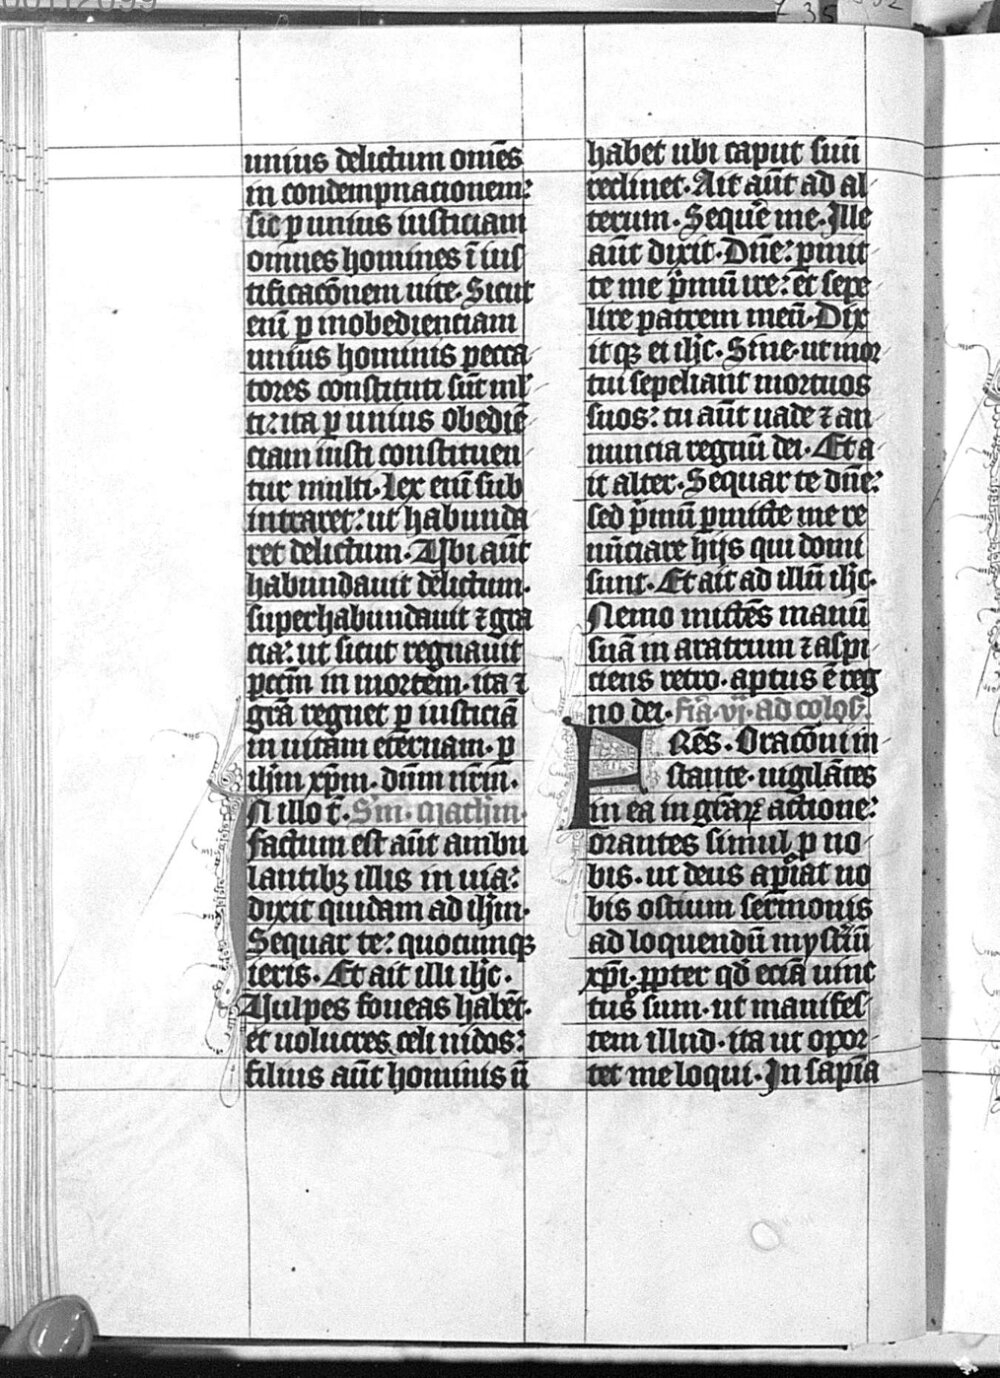 unius delictum om̄es
in condempnacionem:
sic ꝑ unius iusticiam
omnes homines ī ius
tificacōnem uite. Sicut
eni̅ ꝑ inobedienciam
unius hominis pecca
tores constituti sūt ml̅
ti: ita ꝑ unius obediē
ciam iusti constituen
tur multi. Lex eni̅ sub
intraret: ut habunda
ret delictum. Ubi aūt
habundauit delictum.
superhabundauit ⁊ gra
cia: ut sicut regnauit
pccm̄ in mortem. ita ⁊
gr̄a regnet ꝑ iusticiā
in uitam eternam. ꝑ
ih̄m xp̄m. dūm nr̄m.
In illo t̄. Sm̄. Mathm̄.
factum est aūt ambu
lantibꝫ illis in uia:
dixit quidam ad ih̄m.
Sequar te: quocumqꝫ
ieris. Et ait illi ih̄c.
Vulpes foueas habēt.
et uolucres celi nidos:
filius aūt hominis n̄
habet ubi caput suū
reclinet. Ait aūt ad al
terum. Sequēe me. Ille
aūt dixit. Dn̄e: ꝑmit
te me p̄mū ire: et sepe
lire patrem meū. Dix
itqꝫ ei ih̄c. Sine. ut mor
tui sepeliant mortuos
suos: tu aūt uade ⁊ an
nuncia regnū dei. Et a
it alter. Sequar te dn̄e:
sed p̄mū ꝑmitte me re
nūciare hijs qui domi
sunt. Et ait ad illū ih̄c.
Nemo mittēs manū
suā in aratrum ⁊ aspi
ciens retro. aptus ē reg
no dei. fr̄ia. vj. ad colos.
FRēs. Oracōni in
stante. uigilātes
in ea in gr̄aꝝ actione:
orantes simul ꝑ no
bis. ut deus aꝑiat no
bis ostium sermonis
ad loquendū mystīū
xp̄i. ꝓpter qd̄ eciā uinc
tus sum. ut manifes
tem illud. ita ut opor
tet me loqui. In sapīa